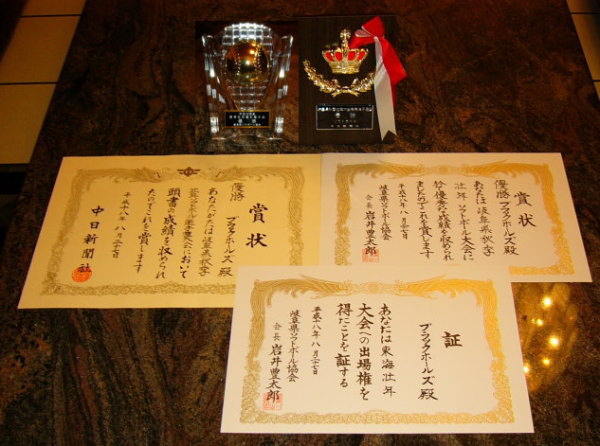 賞状
優勝
ブラックホールズ殿
あなたがたは岐阜県秋季
頭書の成績を収められ
たのでこれを賞します
平成十八年八月二十七日
中日新聞社
賞状
優勝
ブラックホールズ殿
あなたは岐阜県秋季
壮年ソフトボール大会に
於て優秀な成績を収められ
ましたのでこれを賞します
平成十八年八月二十七日
岐阜県ソフトボール協会
会長 岩井豊太郎
証
ブラックホールズ殿
あなたは東海壮年
大会への出場権を
得たことを証する
平成十八年八月二十七日
岐阜県ソフトボール協会
会長 岩井豊太郎